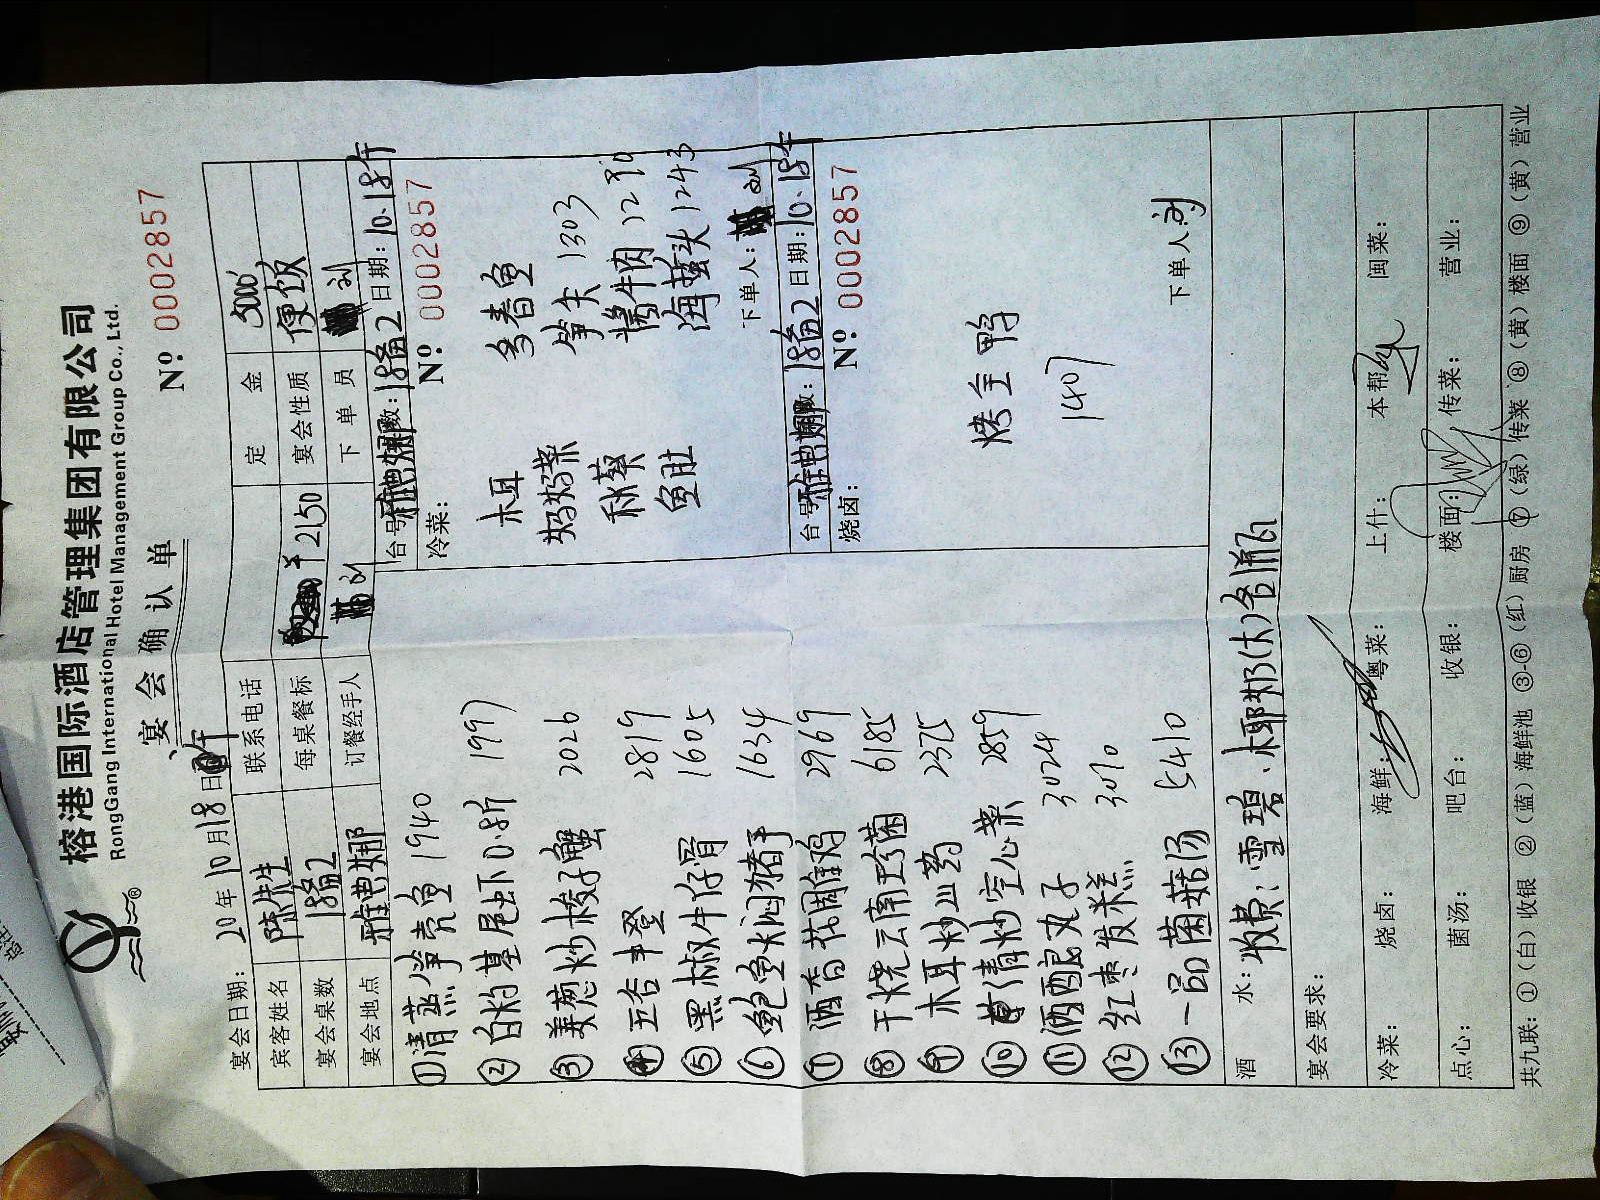 榕港国际酒店管理集团有限公司
RongGang International Hotel Management Group Co., Ltd.
宴会确认单
Nº 0002857
宴会日期: 20 年 10 月 18 日 午
宾客姓名 陈先生 联系电话 定金 3000
宴会桌数 18备2 每桌餐标 ¥2150 宴会性质 便饭
宴会地点 雅典娜 订餐经手人 刘 下单员 刘
①清蒸笋壳鱼 1940
②白灼基尾虾0.8斤 1997
③姜葱炒梭子蟹 2026
④ 2819
⑤黑椒牛仔骨 1605
⑥鲍鱼焖猪手 1634
⑦酒香花雕鸡 2969
⑧干烧云南珍菌 6185
⑨木耳炒山药 2375
⑩清炒空心菜 2859
⑪酒酿丸子 3024
⑫红枣发糕 3070
⑬一品菌菇汤 5410
台号 雅典娜 数: 18备2 日期: 10.18午
冷菜: Nº 0002857
木耳 多春鱼
妈妈菜 笋尖 1303
秋葵 酱牛肉 1290
鱼肚 海蜇头 1243
下单人: 刘
台号 雅典娜 数: 18备2 日期: 10.18午
烧卤: Nº 0002857
烤全鸭
1407
下单人: 刘
酒水: 收费: 雪碧、椰奶(大)各1瓶
宴会要求:
冷菜: 烧卤: 海鲜: 粤菜: 上什: 本帮: 闽菜:
点心: 菌汤: 吧台: 收银: 楼面: 传菜: 营业:
共九联: ①(白)收银 ②(蓝)海鲜池 ③-⑥(红)厨房 ⑦(绿)传菜 ⑧(黄)楼面 ⑨(黄)营业